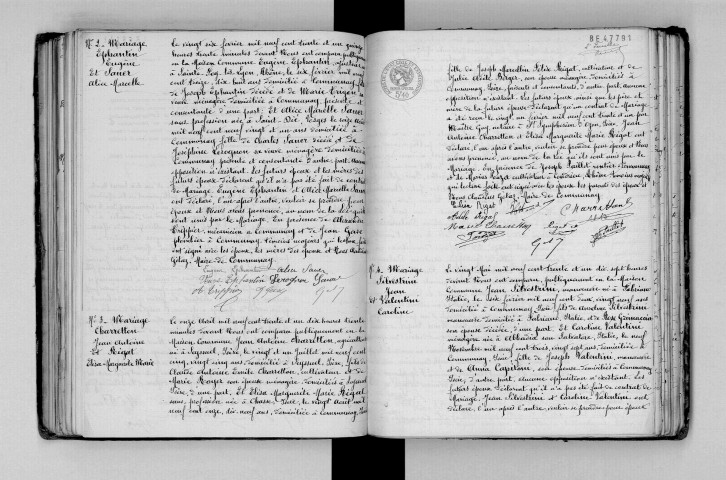 N° 2 - Mariage
Ephantin
Eugène
Et Saner
Alice Marcelle
Le vingt six février mil neuf cent trente et un quinze
heures trente minutes devant Nous ont comparu publiquement
en la maison Commune Eugène Ephantin,
à Sainte Foy les Lyon, Rhône, le six février mil neuf
cent treize, dix huit ans domicilié à Communay, fils
de Joseph Ephantin décédé et de Marie Trigon sa
veuve ménagère domiciliée à Communay, présente et
consentante d'une part; Et Alice Marcelle Saner
sans profession née à Saint Dié, Vosges le seize
mil neuf cent neuf vingt et un ans domiciliée à
Communay fille de Charles Saner décédé et de
Joséphine sa veuve ménagère domiciliée à
Communay présente et consentante d'autre part, aucune
opposition n'existant. Les futurs époux et les mères des
futurs époux déclarent qu'il n'a pas été fait de contrat
de Mariage. Eugène Ephantin et Alice Marcelle Saner
ont déclaré, l'un après l'autre, vouloir se prendre pour
époux et Nous avons prononcé, au nom de la loi qu'ils
sont unis par le Mariage. En présence de
Trippier, mécanicien à Communay et de Jean
plombier à Communay, témoins majeurs qui lecture faite
ont signé avec les époux, les mères des époux et Nous
Maire de Communay
Eugène Ephantin Alice Saner
Veuve Ephantin Veuve Saner
N° 3 - Mariage
Charretton
Jean Antoine
et Rigat
Elisa Marguerite Marie
Le onze Avril mil neuf cent trente et un dix heures trente
minutes devant Nous ont comparu publiquement en la
Maison Commune Jean Antoine Charretton, agriculteur
né à Luzinay, Isère, le vingt et un Juillet mil neuf cent
cinq, vingt cinq ans, domicilié à Luzinay, Isère, fils de
Claude Antoine Emile Charretton, cultivateur et de
Marie Royer son épouse ménagère domiciliés à Luzinay
Isère, d'une part; Et Elisa Marguerite Marie Rigat
sans profession née à Chasse, Isère, le vingt Avril mil
neuf cent onze, dix-neuf ans, domiciliée à Communay, Isère
BE47791
fille de Joseph Rigat, cultivateur et de
Julie son épouse ménagère domiciliés à
Communay, Isère, présents et consentants, d'autre part, aucune
opposition n'existant. Les futurs époux ainsi que les père et
mère de la future épouse déclarent qu'un contrat de Mariage
a été reçu le vingt un février mil neuf cent trente et un par
Maître Guy, notaire à St Symphorien d'Ozon, Isère. Jean
Antoine Charretton et Elisa Marguerite Marie Rigat ont
déclaré, l'un après l'autre, vouloir se prendre pour époux et Nous
avons prononcé, au nom de la loi qu'ils sont unis par le
Mariage. En présence de Joseph
qui lecture faite ont signé avec les époux, les parents des époux et
Nous Maire de Communay
Elisa Rigat
Charretton
N° 4 - Mariage
Silvestrini
Jean
et Valentini
Caroline
Le vingt Mai mil neuf cent trente et un dix sept heures
devant Nous ont comparu publiquement en la Maison
Commune Jean Silvestrini, manœuvre né à Fabriano
Italie, le six Juin mil neuf cent deux, vingt neuf ans
domicilié à Communay Isère, fils de Silvestrini
manœuvre domicilié à Fabriano, Italie, et de Rose
son épouse décédée, d'une part. Et Caroline Valentini,
ménagère née à San Salvatore, Italie, le neuf
Novembre mil neuf cent trois, vingt sept ans, domiciliée à
Communay, Isère, fille de Joseph Valentini, manœuvre
et de Anna Capitani son épouse domiciliés à Communay,
Isère, d'autre part, aucune opposition n'existant. Les
futurs époux déclarent qu'il n'a pas été fait de contrat de
Mariage. Jean Silvestrini et Caroline Valentini ont
déclaré, l'un après l'autre, vouloir se prendre pour époux